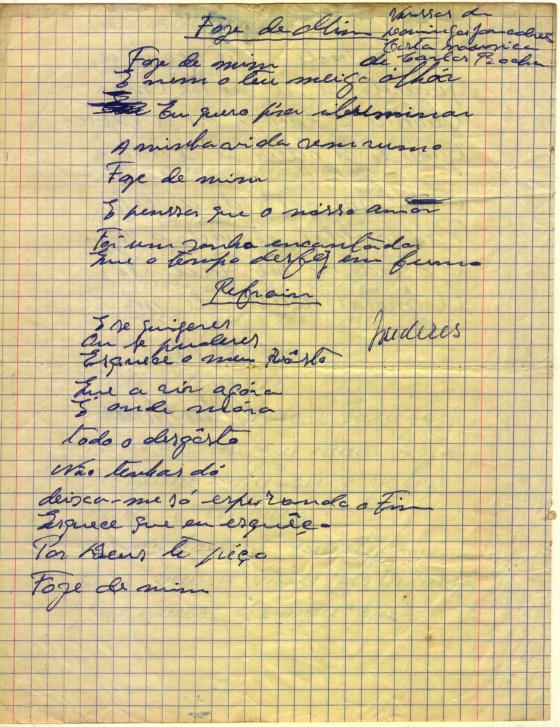 Foge de Mim
Versos de
Domingos Gonçalves
Costa
de Carlos Rocha
Foge de mim
E nem o teu meigo olhar
Eu quero p'ra iluminar
A minha vida sem rumo
Foge de mim
E penssar que o nósso amôr
Foi um sonho encantador
Que o tempo desfez em fumo
Refrain
E se quizeres
Ou se puderes
Puderes
Esquece o meu rôsto
Que a rir agóra
É onde móra
todo o desgôsto
Não tenhas dó
deixa-me só esperando o Fim
Esquece que eu esquêço
Por Deus te péço
Foge de mim